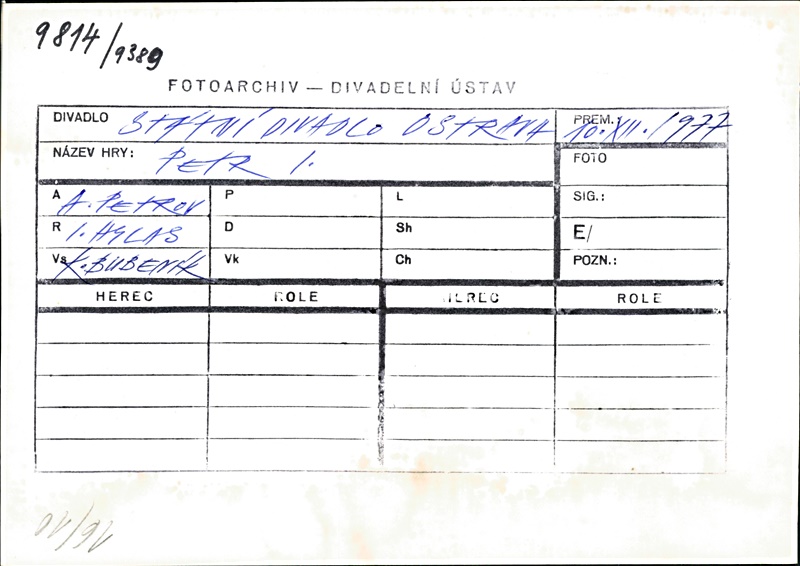 9814/9389
FOTOARCHIV — DIVADELNÍ ÚSTAV
DIVADLO STÁTNÍ DIVADLO OSTRAVA PREM. 10. XII. 1977
NÁZEV HRY: PETR I. FOTO
A A. PETROV P L SIG.:
R I. HYLAS D Sh E/
Vs K. BUBENÍK Vk Ch POZN.:
HEREC ROLE HEREC ROLE